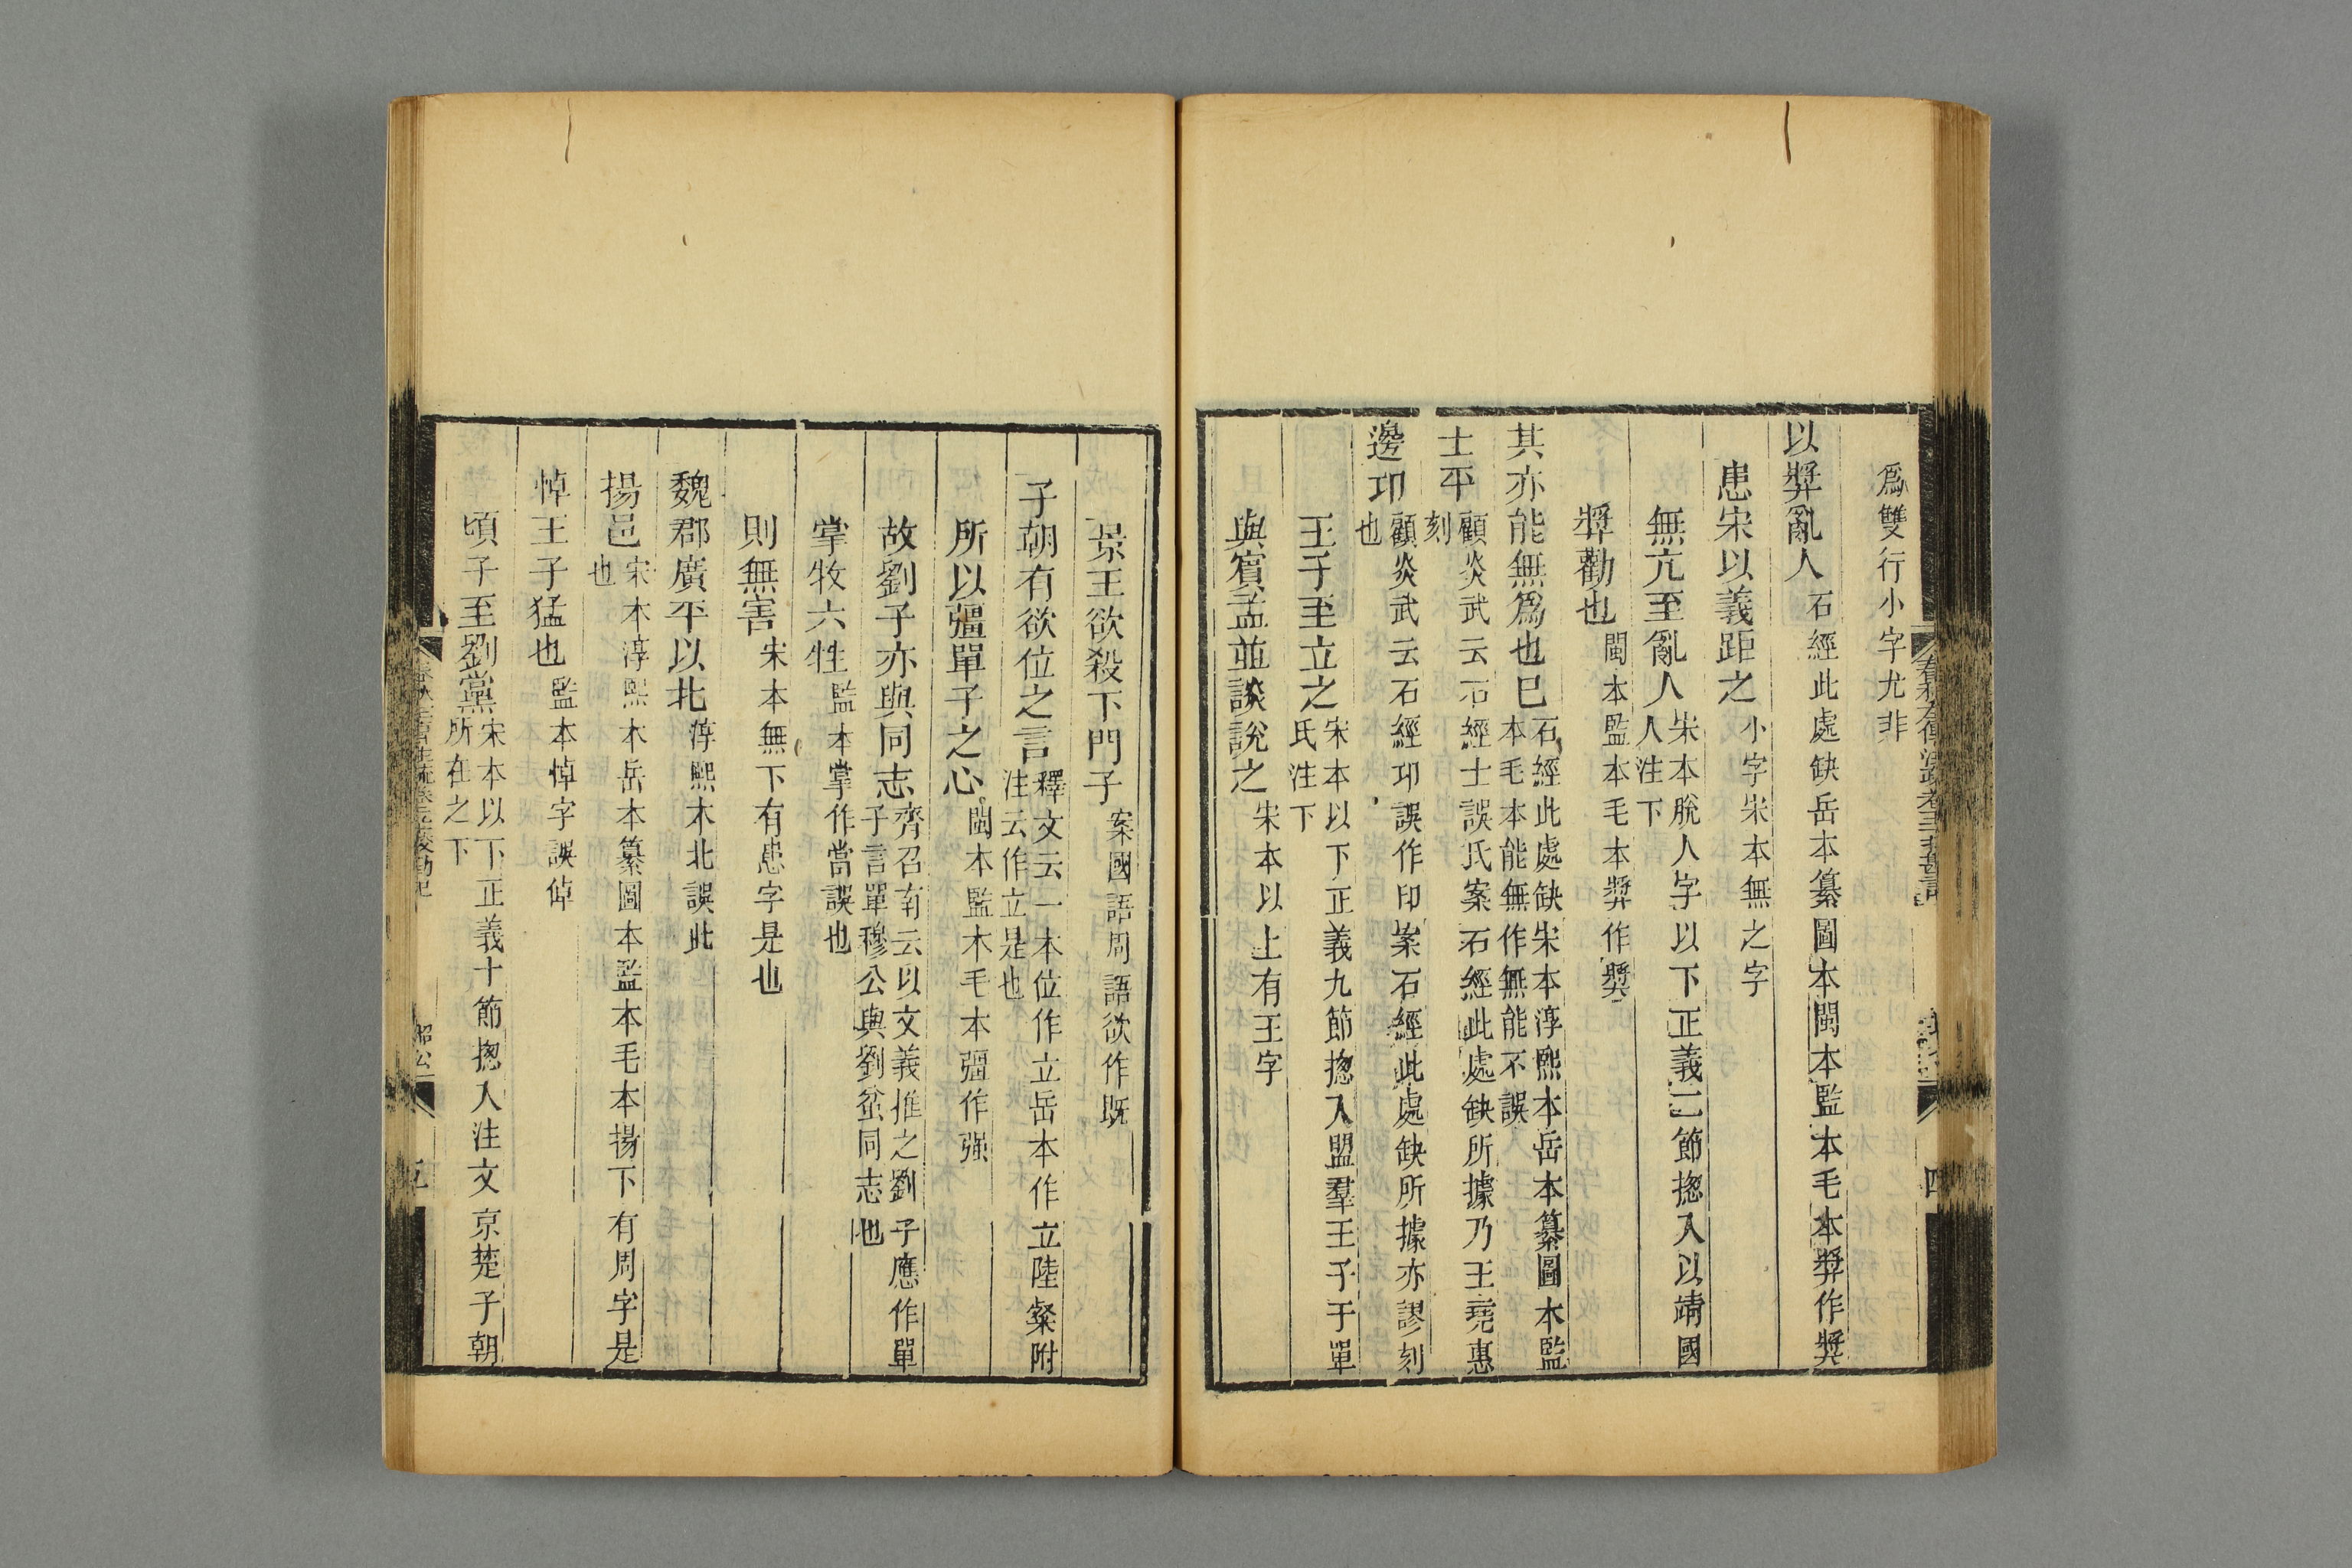 爲雙行小字尤非
以獎亂人石經此處缺岳本纂圖本閩本監本毛本獎作奬
患宋以義距之小字宋本無之字
無亢至亂人宋本脫人字以下正義二節揔入以靖國
人注下
獎勸也閩本監本毛本獎作奬
其亦能無爲也已石經此處缺宋本淳熙本岳本纂圖本監
本毛本能無作無能不誤
士平顧炎武云石經士誤氏案石經此處缺所據乃王堯惠
刻
邊卭顧炎武云石經卭誤作印案石經此處缺所據亦謬刻
也
王子至立之宋本以下正義九節揔入盟羣王子于單
氏注下
與賓孟並談說之宋本以上有王字
景王欲殺下門子案國語周語欲作既
子朝有欲位之言釋文云一本位作立岳本作立陸粲附
注云作立是也
所以彊單子之心閩本監本毛本彊作强
故劉子亦與同志齊召南云以文義推之劉子應作單
子言單穆公與劉盆同志也
掌牧六牲監本掌作當誤也
則無害宋本無下有患字是也
魏郡廣平以北淳熙本北誤此
揚邑宋本淳熙本岳本纂圖本監本毛本揚下有周字是
也
悼王子猛也監本悼字誤倬
頃子至劉黨宋本以下正義十節揔入注文京楚子朝
所在之下
昭公
五